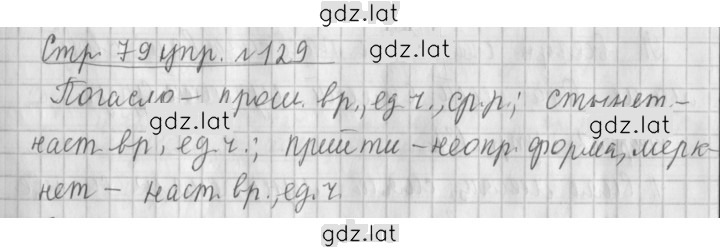 gdz.lat
Стр 79 упр. №129
gdz.lat
Погасло – прош. вр., ед.ч., ср.р.; стынет –
gdz.lat
gdz.lat
наст вр, ед.ч.; прийти – неопр. форма, мерк-
нет – наст. вр., ед.ч.
gdz.lat
gdz.lat